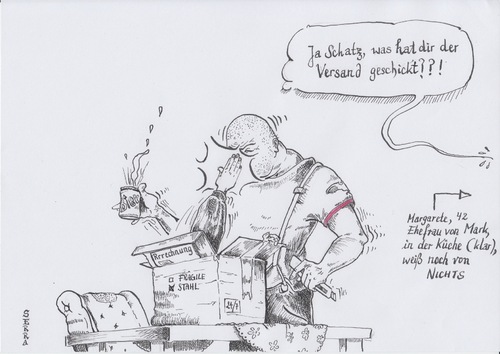 Ja Schatz, was hat dir der
Versand geschickt??!
Margarete, 42
Ehefrau von Mark,
in der Küche (klar),
weiß noch von
NICHTS
Rerechnung
FRAGILE
STAHL
24/7